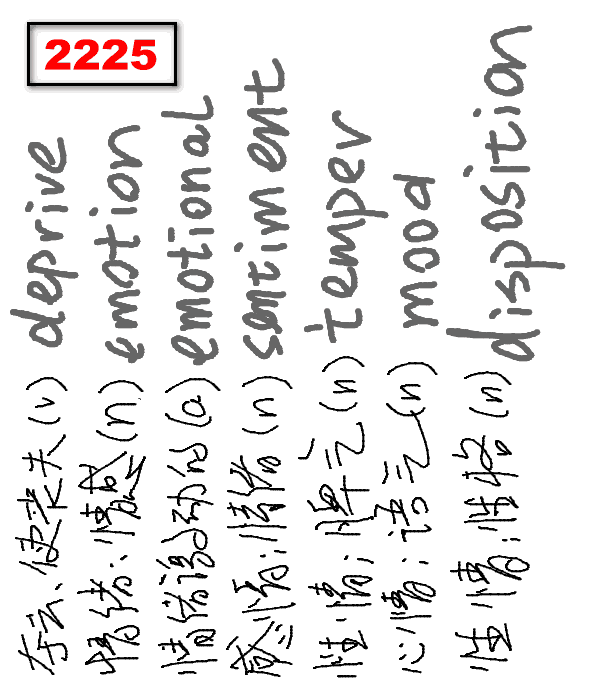 2225
夺去、使丧失(v) deprive
情绪、情感(n) emotion
情绪激动的(a) emotional
感情;情绪(n) sentiment
性情;脾气(n) temper
心情;语气(n) mood
性情;性格(n) disposition